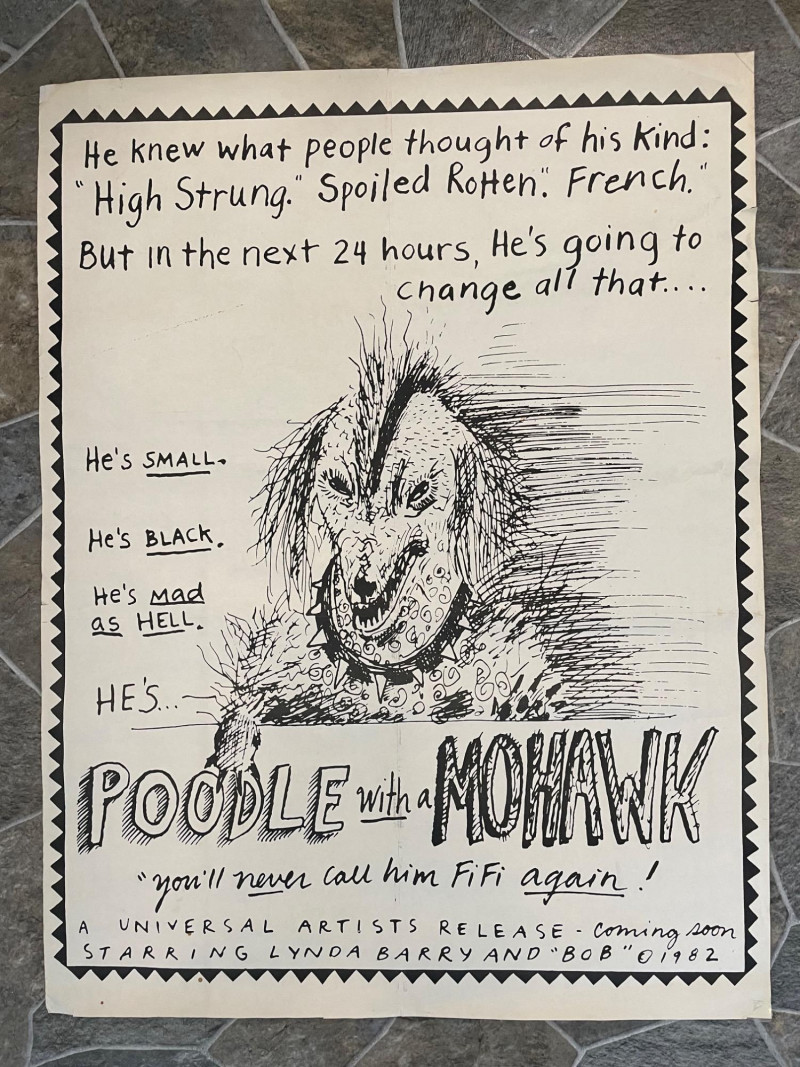 He knew what people thought of his kind:
"High Strung." Spoiled Rotten". French."
But in the next 24 hours, He's going to
change all that....
He's SMALL.
He's BLACK.
He's Mad
as HELL.
HE'S...
POODLE with a MOHAWK
"you'll never call him FiFi again!
A UNIVERSAL ARTISTS RELEASE - coming soon
STARRING LYNDA BARRY AND "BOB" © 1982